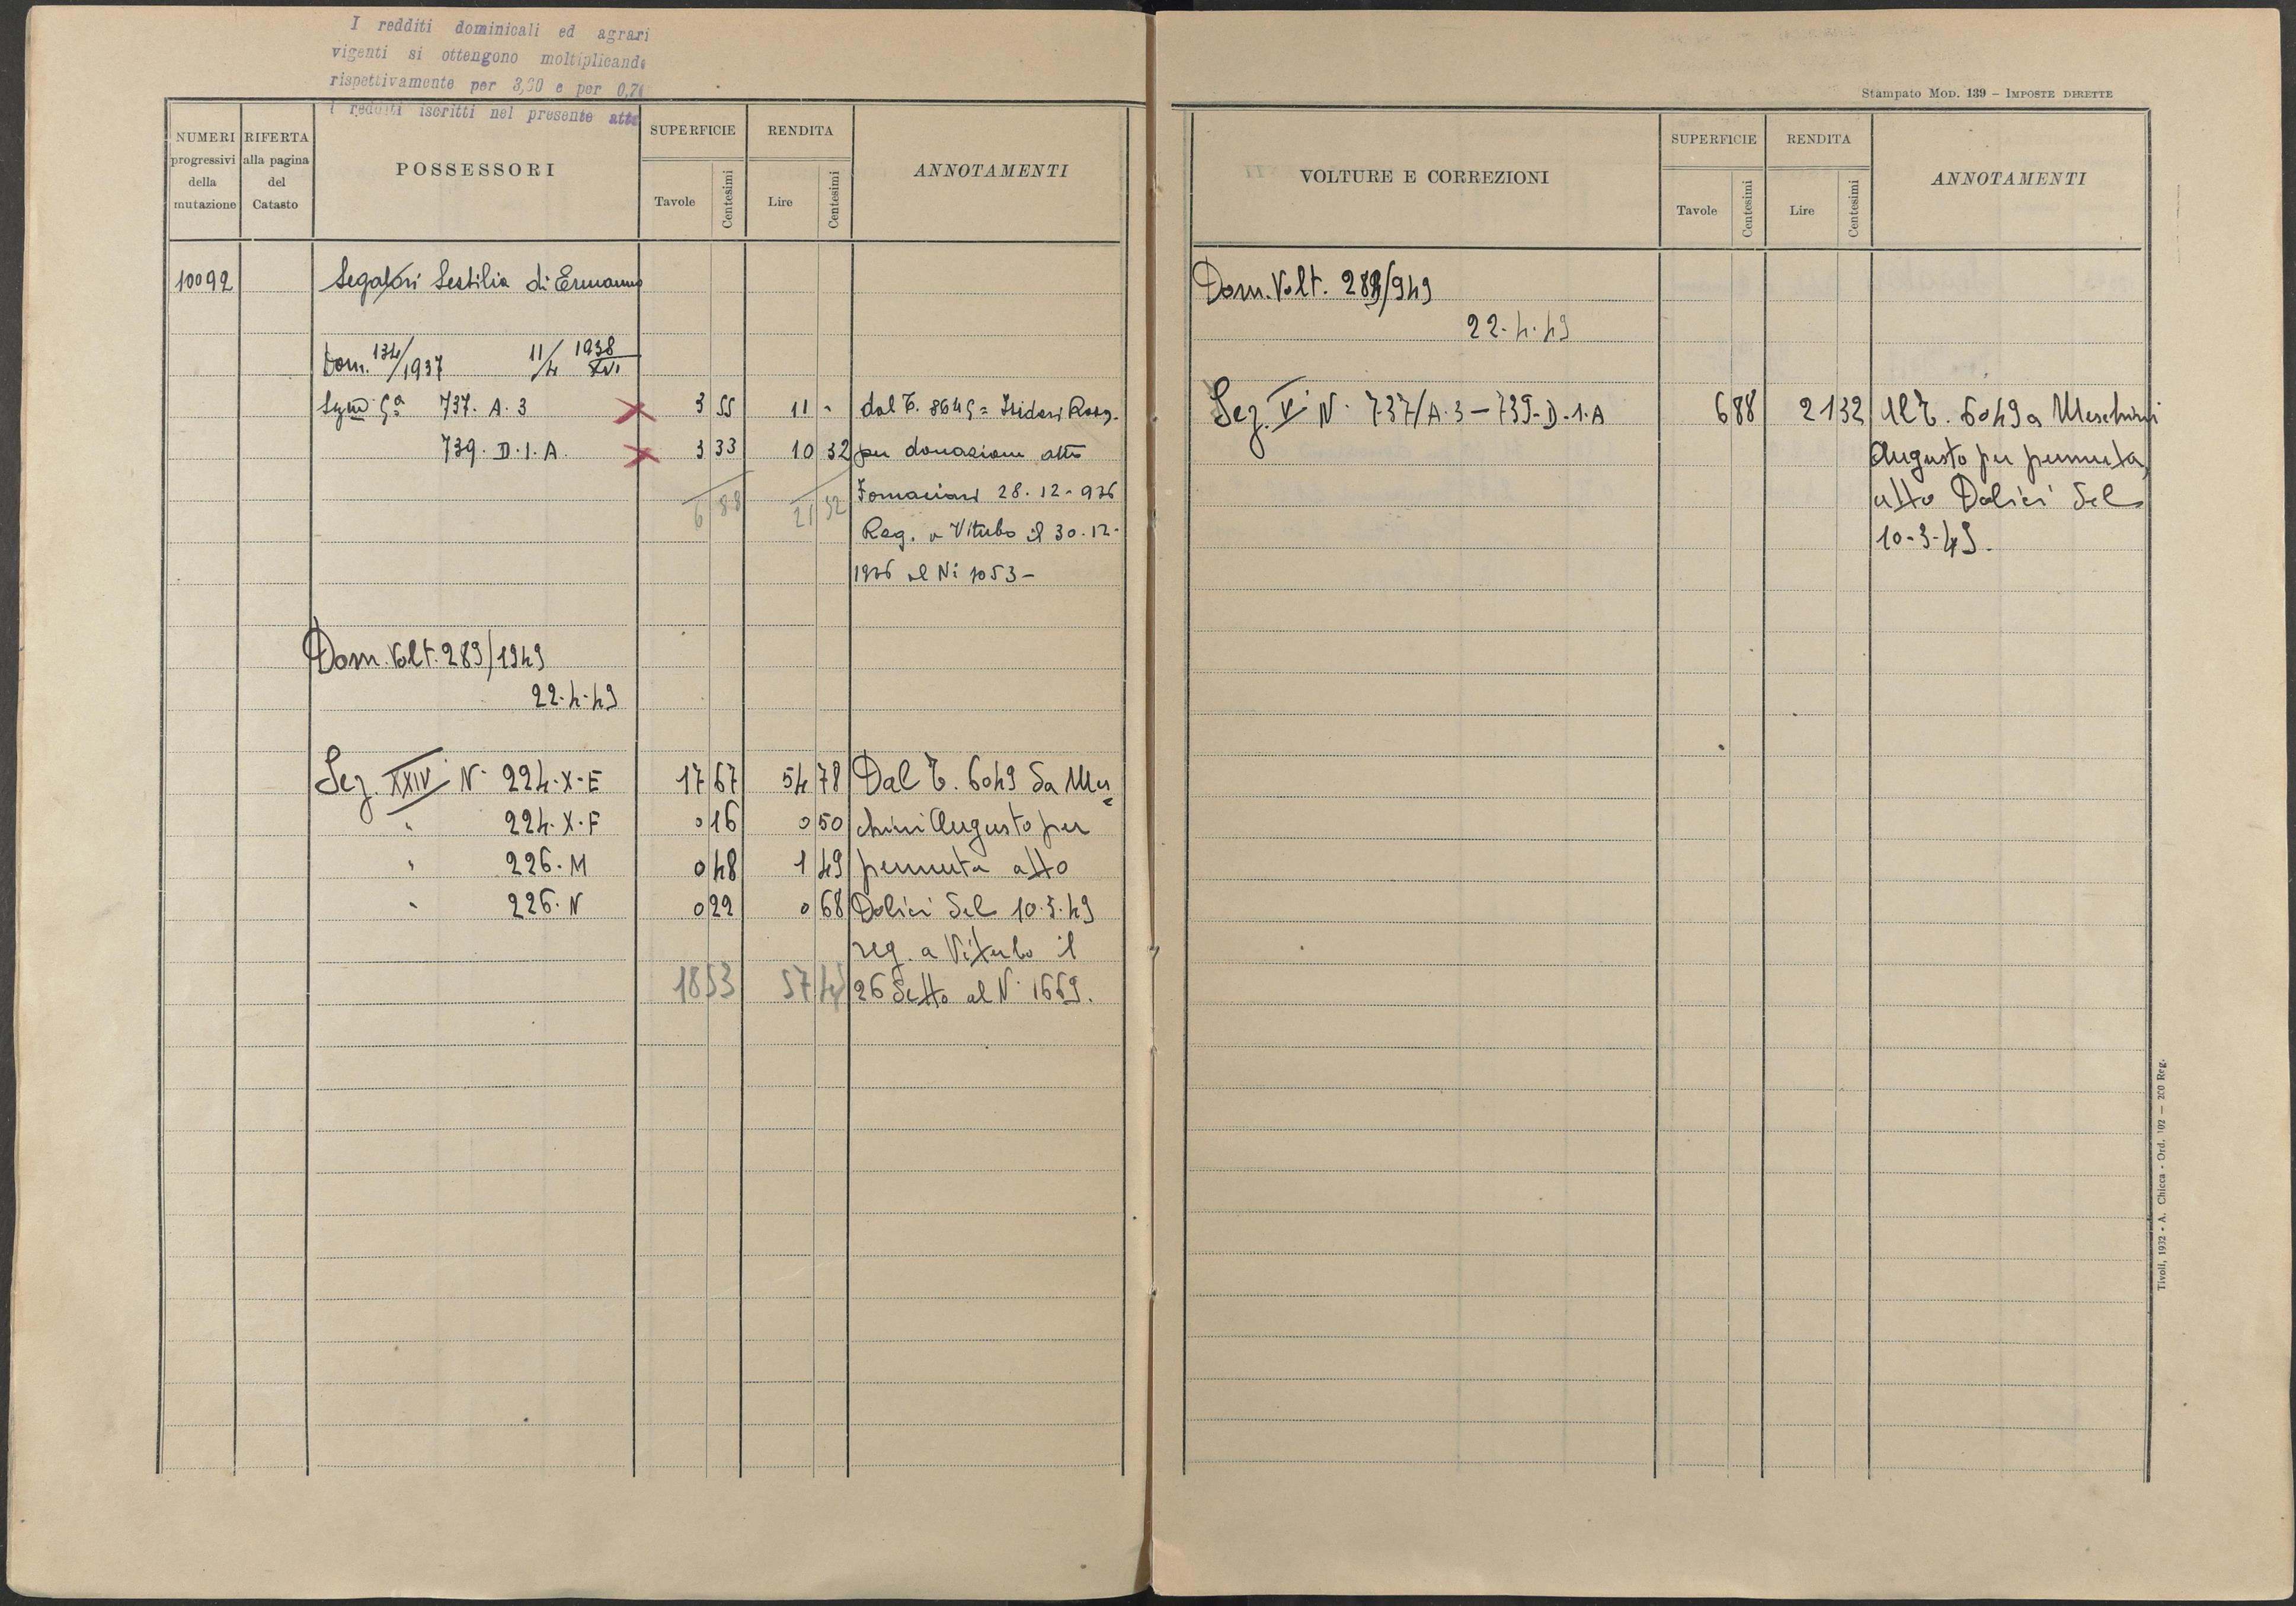 I redditi dominicali ed agrari
vigenti si ottengono moltiplicando
rispettivamente per 3,60 e per 0,7
i redditi iscritti nel presente atto
NUMERI progressivi della mutazione
RIFERTA alla pagina del Catasto
POSSESSORI
SUPERFICIE
Tavole Centesimi
RENDITA
Lire Centesimi
ANNOTAMENTI
10092 Sestilia di Ermanno
Dom. 134/1937 11/4 1938 XVI
737. A. 3 3 55 11 - dal T. 8645 = Isidori
739. D. 1. A. 3 33 10 32 per donazione atto
6 88 21 32 Fornaciari 28. 12 - 936
Reg. a Viterbo il 30. 12 -
1936 al Ni 1053 -
Dom. Volt. 289/1949
22. 4. 49
Sez. XXIV N. 224. X. E 17 67 54 78 Dal T. 6049 da Mes
" 224. X. F 0 16 0 50 chini Augusto per
" 226. M 0 48 1 49 permuta atto
" 226. N 0 22 0 68 Dolici del 10. 3. 49
reg. a Viterbo il
18 53 57 45 26 detto al N. 1669.
Stampato MOD. 139 – IMPOSTE DIRETTE
VOLTURE E CORREZIONI
SUPERFICIE
Tavole Centesimi
RENDITA
Lire Centesimi
ANNOTAMENTI
Dom. Volt. 289/949
22. 4. 49
Sez. V N. 737/A. 3 – 739. D. 1. A 6 88 21 32 Al T. 6049 a Meschini
Augusto per permuta,
atto Dolici del
10 - 3 - 49.
Tivoli, 1932 - A. Chicca - Ord. 102 — 200 Reg.